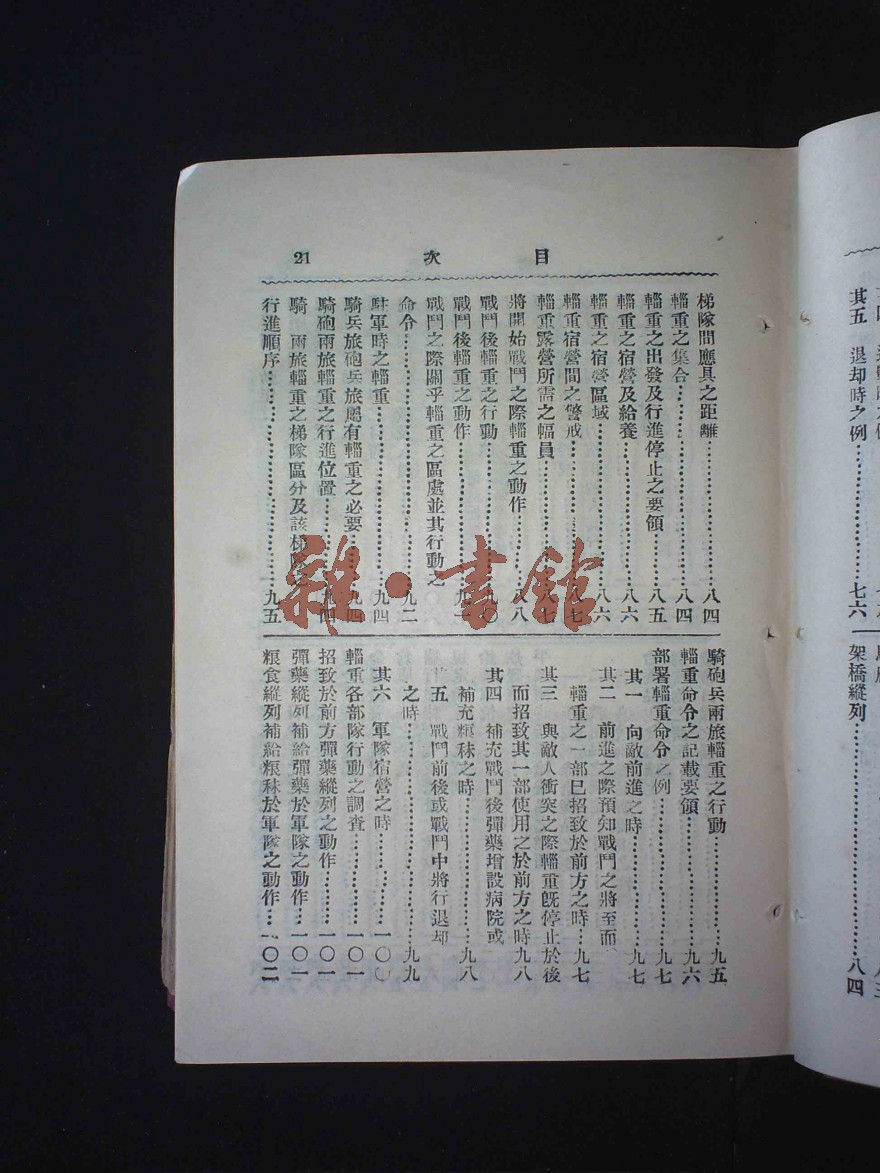 目次
21
梯隊間應具之距離……八四
輜重之集合……八四
輜重之出發及行進停止之要領……八五
輜重之宿營及給養……八六
輜重之宿營區域……八六
輜重宿營間之警戒……八七
輜重露營所需之幅員……八七
將開始戰鬥之際輜重之動作……八八
戰鬥後輜重之行動……九〇
戰鬥後輜重之動作……九一
戰鬥之際關乎輜重之區處並其行動之
命令……九二
駐軍時之輜重……九四
騎兵旅砲兵旅屬有輜重之必要……九四
騎砲兩旅輜重之行進位置……九四
騎 兩旅輜重之梯隊區分及該梯隊之
行進順序……九五
騎砲兵兩旅輜重之行動……九五
輜重命令之記載要領……九六
部署輜重命令之例……九七
其一 向敵前進之時……九七
其二 前進之際預知戰鬥之將至而
輜重之一部已招致於前方之時…九七
其三 與敵人衝突之際輜重旣停止於後
而招致其一部使用之於前方之時九八
其四 補充戰鬥後彈藥增設病院或
補充粮秣之時……九八
其五 戰鬥前後或戰鬥中將行退却
之時……九九
其六 軍隊宿營之時……一〇〇
輜重各部隊行動之調查……一〇一
招致於前方彈藥縱列之動作……一〇一
彈藥縱列補給彈藥於軍隊之動作…一〇一
粮食縱列補給粮秣於軍隊之動作…一〇二
其五 退却時之例……七六
架橋縱列……八四
雜·書館